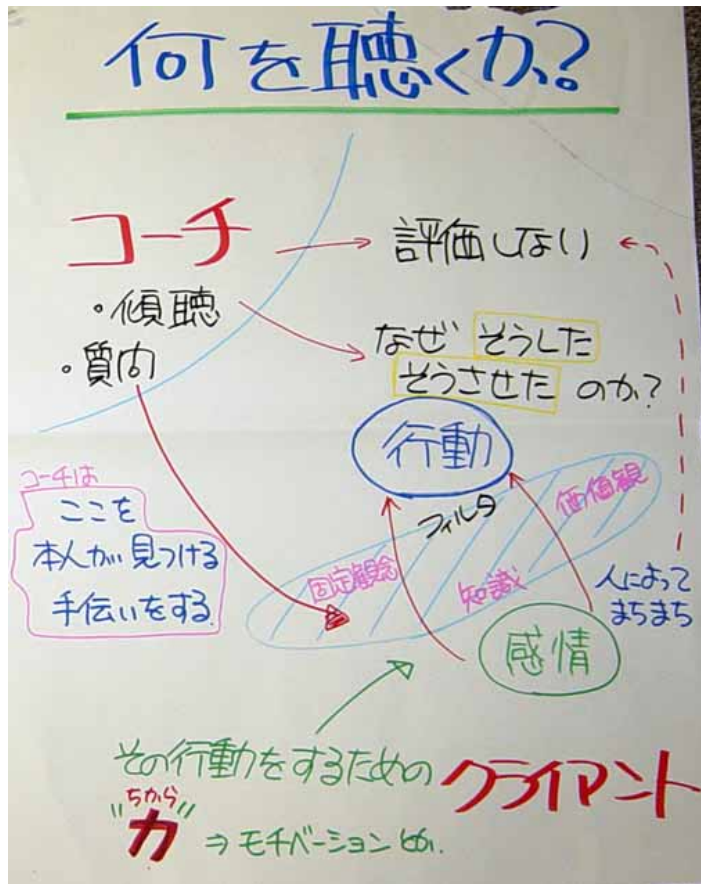 何を聴くか?
コーチ
評価しない
・傾聴
・質問
なぜ そうした
そうさせた のか?
行動
コーチは
ここを
本人が見つける
手伝いをする.
フィルタ
価値観
固定観念
知識
人によって
まちまち
感情
その行動をするための
クライアント
ちから
"力"
⇒ モチベーション とか.